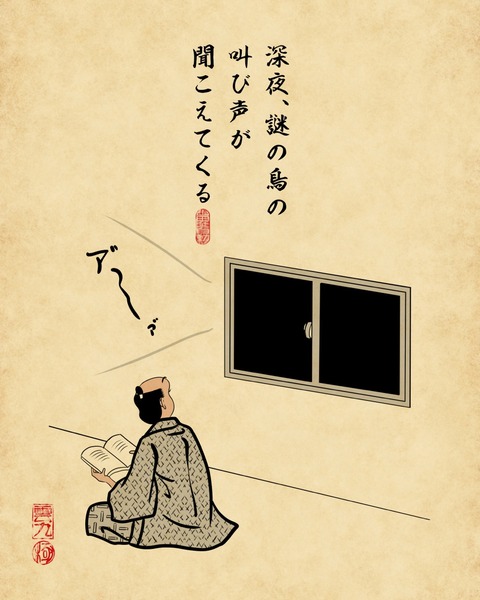 深夜、謎の鳥の
叫び声が
聞こえてくる
ア゛〜ァ゛